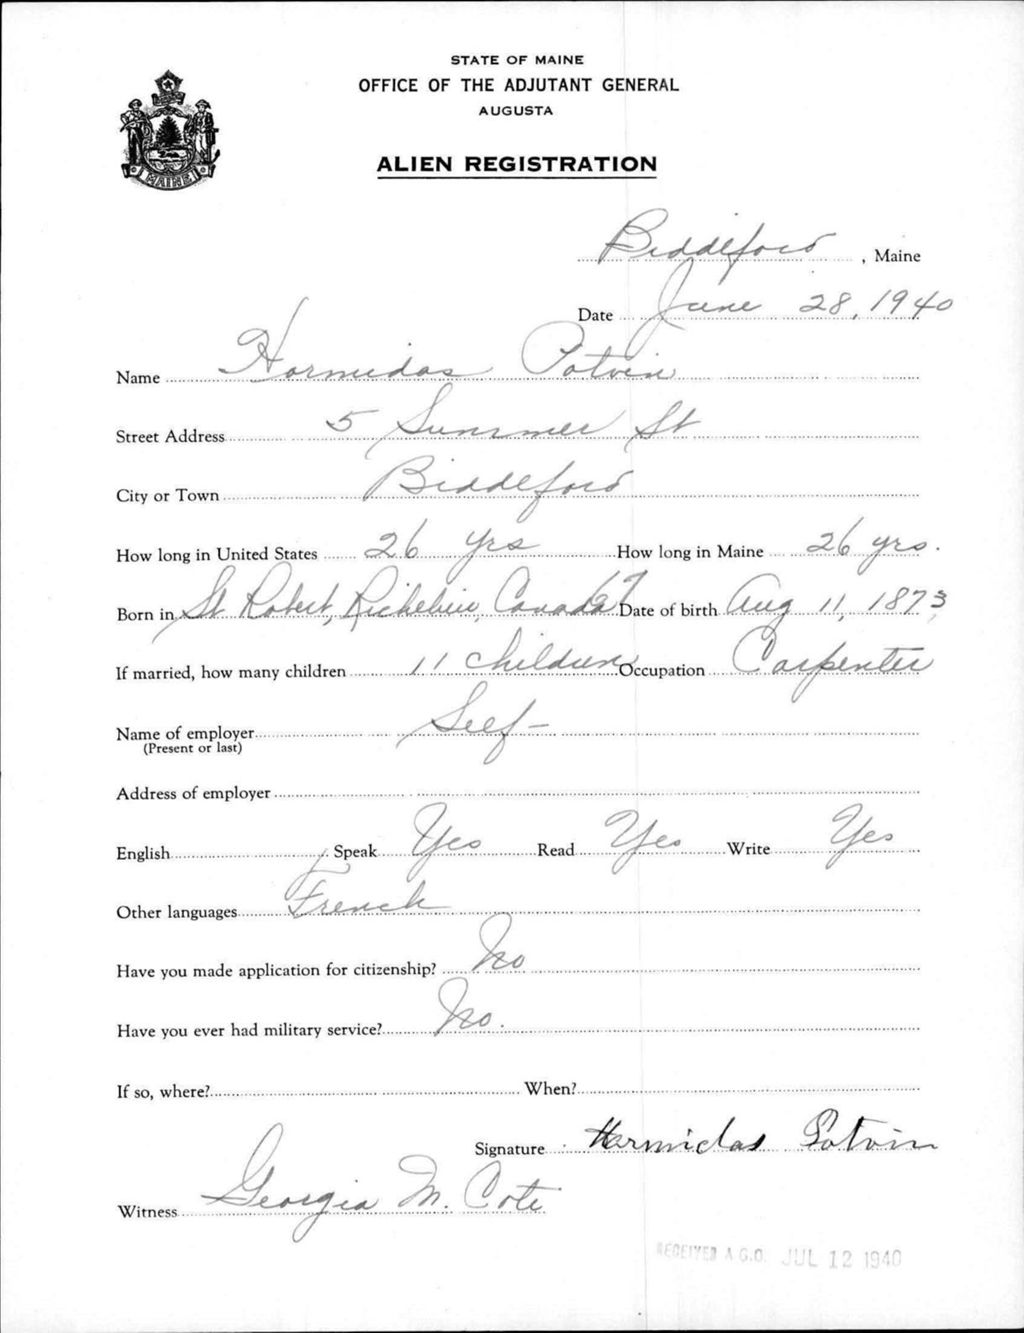 STATE OF MAINE
OFFICE OF THE ADJUTANT GENERAL
AUGUSTA
ALIEN REGISTRATION
MAINE
Biddeford, Maine
Date June 28, 1940
Name Hormidas Potvin
Street Address 5 Summer St
City or Town Biddeford
How long in United States 26 yrs How long in Maine 26 yrs.
Born in St Robert, Richelieu, Canada 67 Date of birth Aug 11, 1873
If married, how many children 11 children Occupation Carpenter
Name of employer Self-
(Present or last)
Address of employer
English Speak Yes Read Yes Write Yes
Other languages French
Have you made application for citizenship? No
Have you ever had military service? No.
If so, where? When?
Signature Hormidas Potvin
Witness Georgia M. Cote
RECEIVED A.G.O. JUL 12 1940